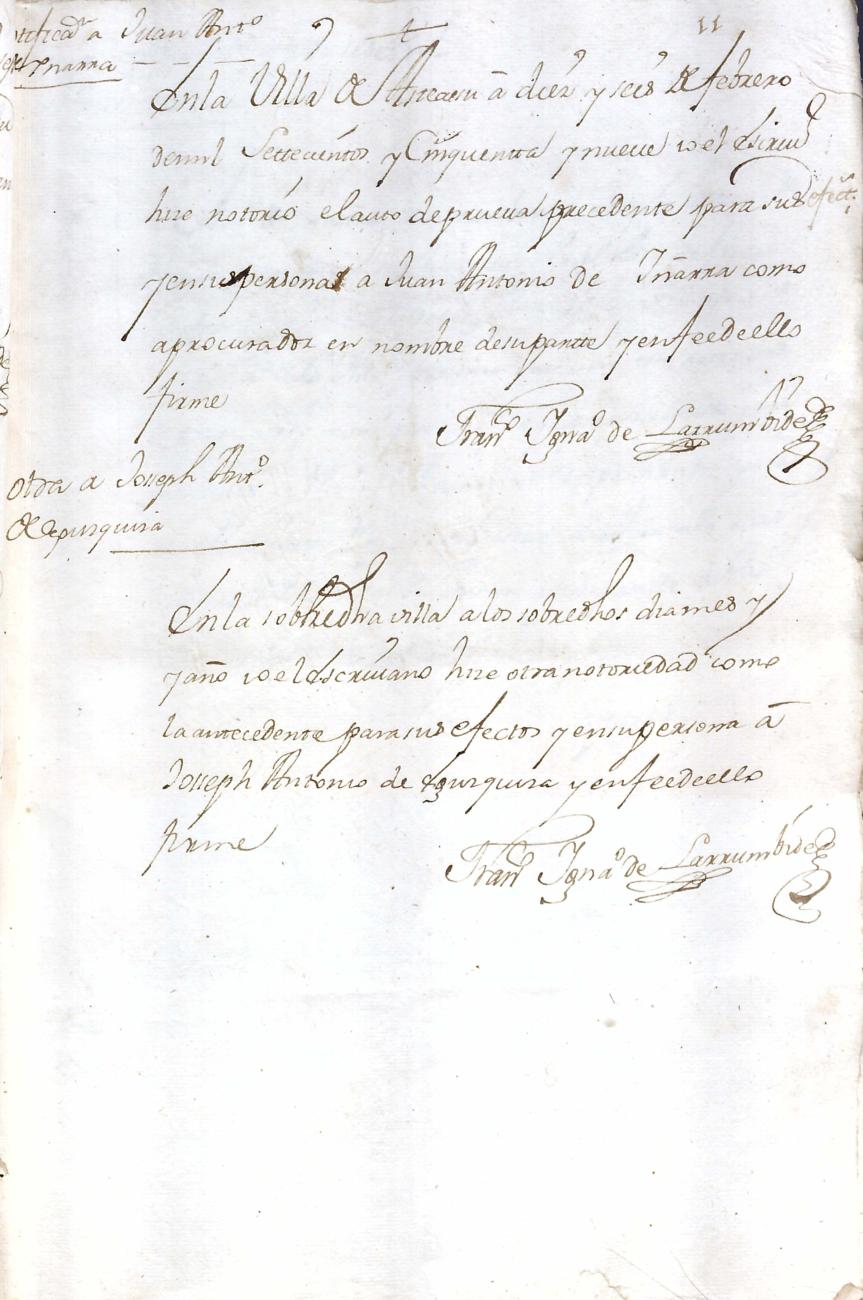 notificaon a Juan Anto
de Ynarra
11
En la Villa de Asteasu a diez y seis de febrero
de mil Settecientos y Cinquentta y nueve io el Escriuo
hize notorio el auto de prueva precedente para sus efectos
y en su persona a Juan Antonio de Yñarra como
a procurador en nombre de su partte y en fee de ello
firme
Frano Ignao de Larrumbide
otra a Joseph Anto
de Eguzquiza
En la sobredha villa a los sobredhos dia mes y
y año io el Escriuano hize otra notoriedad como
la antecedente para sus efectos y en su persona a
Josseph Antonio de Eguzquiza y en fee de ello
firme
Frano Ignao de Larrumbide